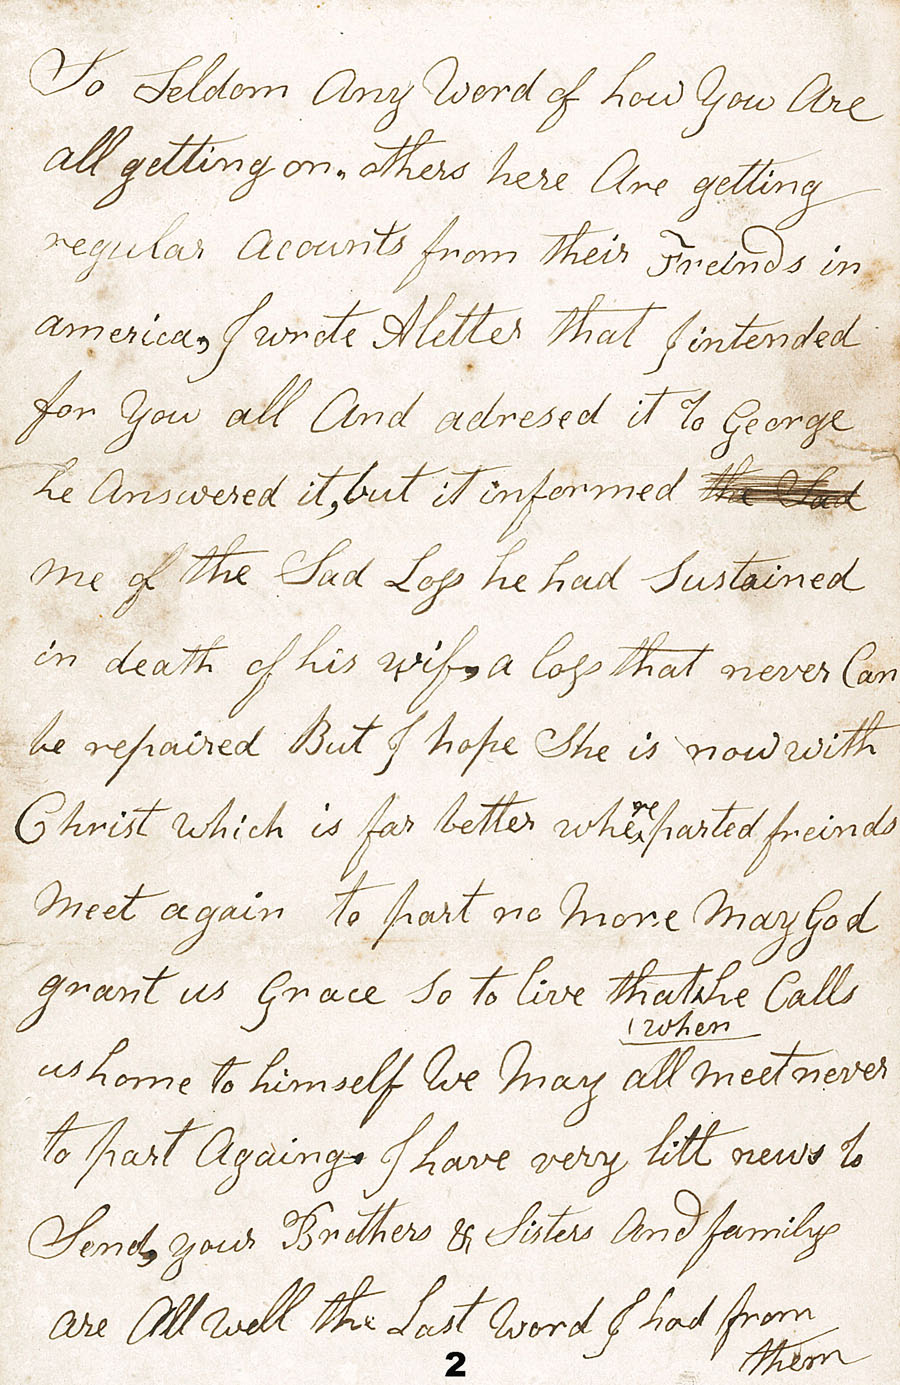 To Seldom Any Word of how You Are
all getting on. others here Are getting
regular Acounts from their Freinds in
america, I wrote A letter that I intended
for You all And adresed it to George
he Answered it, but it informed the Sad
me of the Sad Loss he had Sustained
in death of his wife, a loss that never Can
be repaired But I hope She is now with
Christ which is far better where parted freinds
Meet again to part no More May God
grant us Grace so to live that he Calls
when
us home to himself We May all meet never
to part Againg. I have very litt news to
Send, your Brothers & Sisters And family
are All well the Last Word I had from
them
2